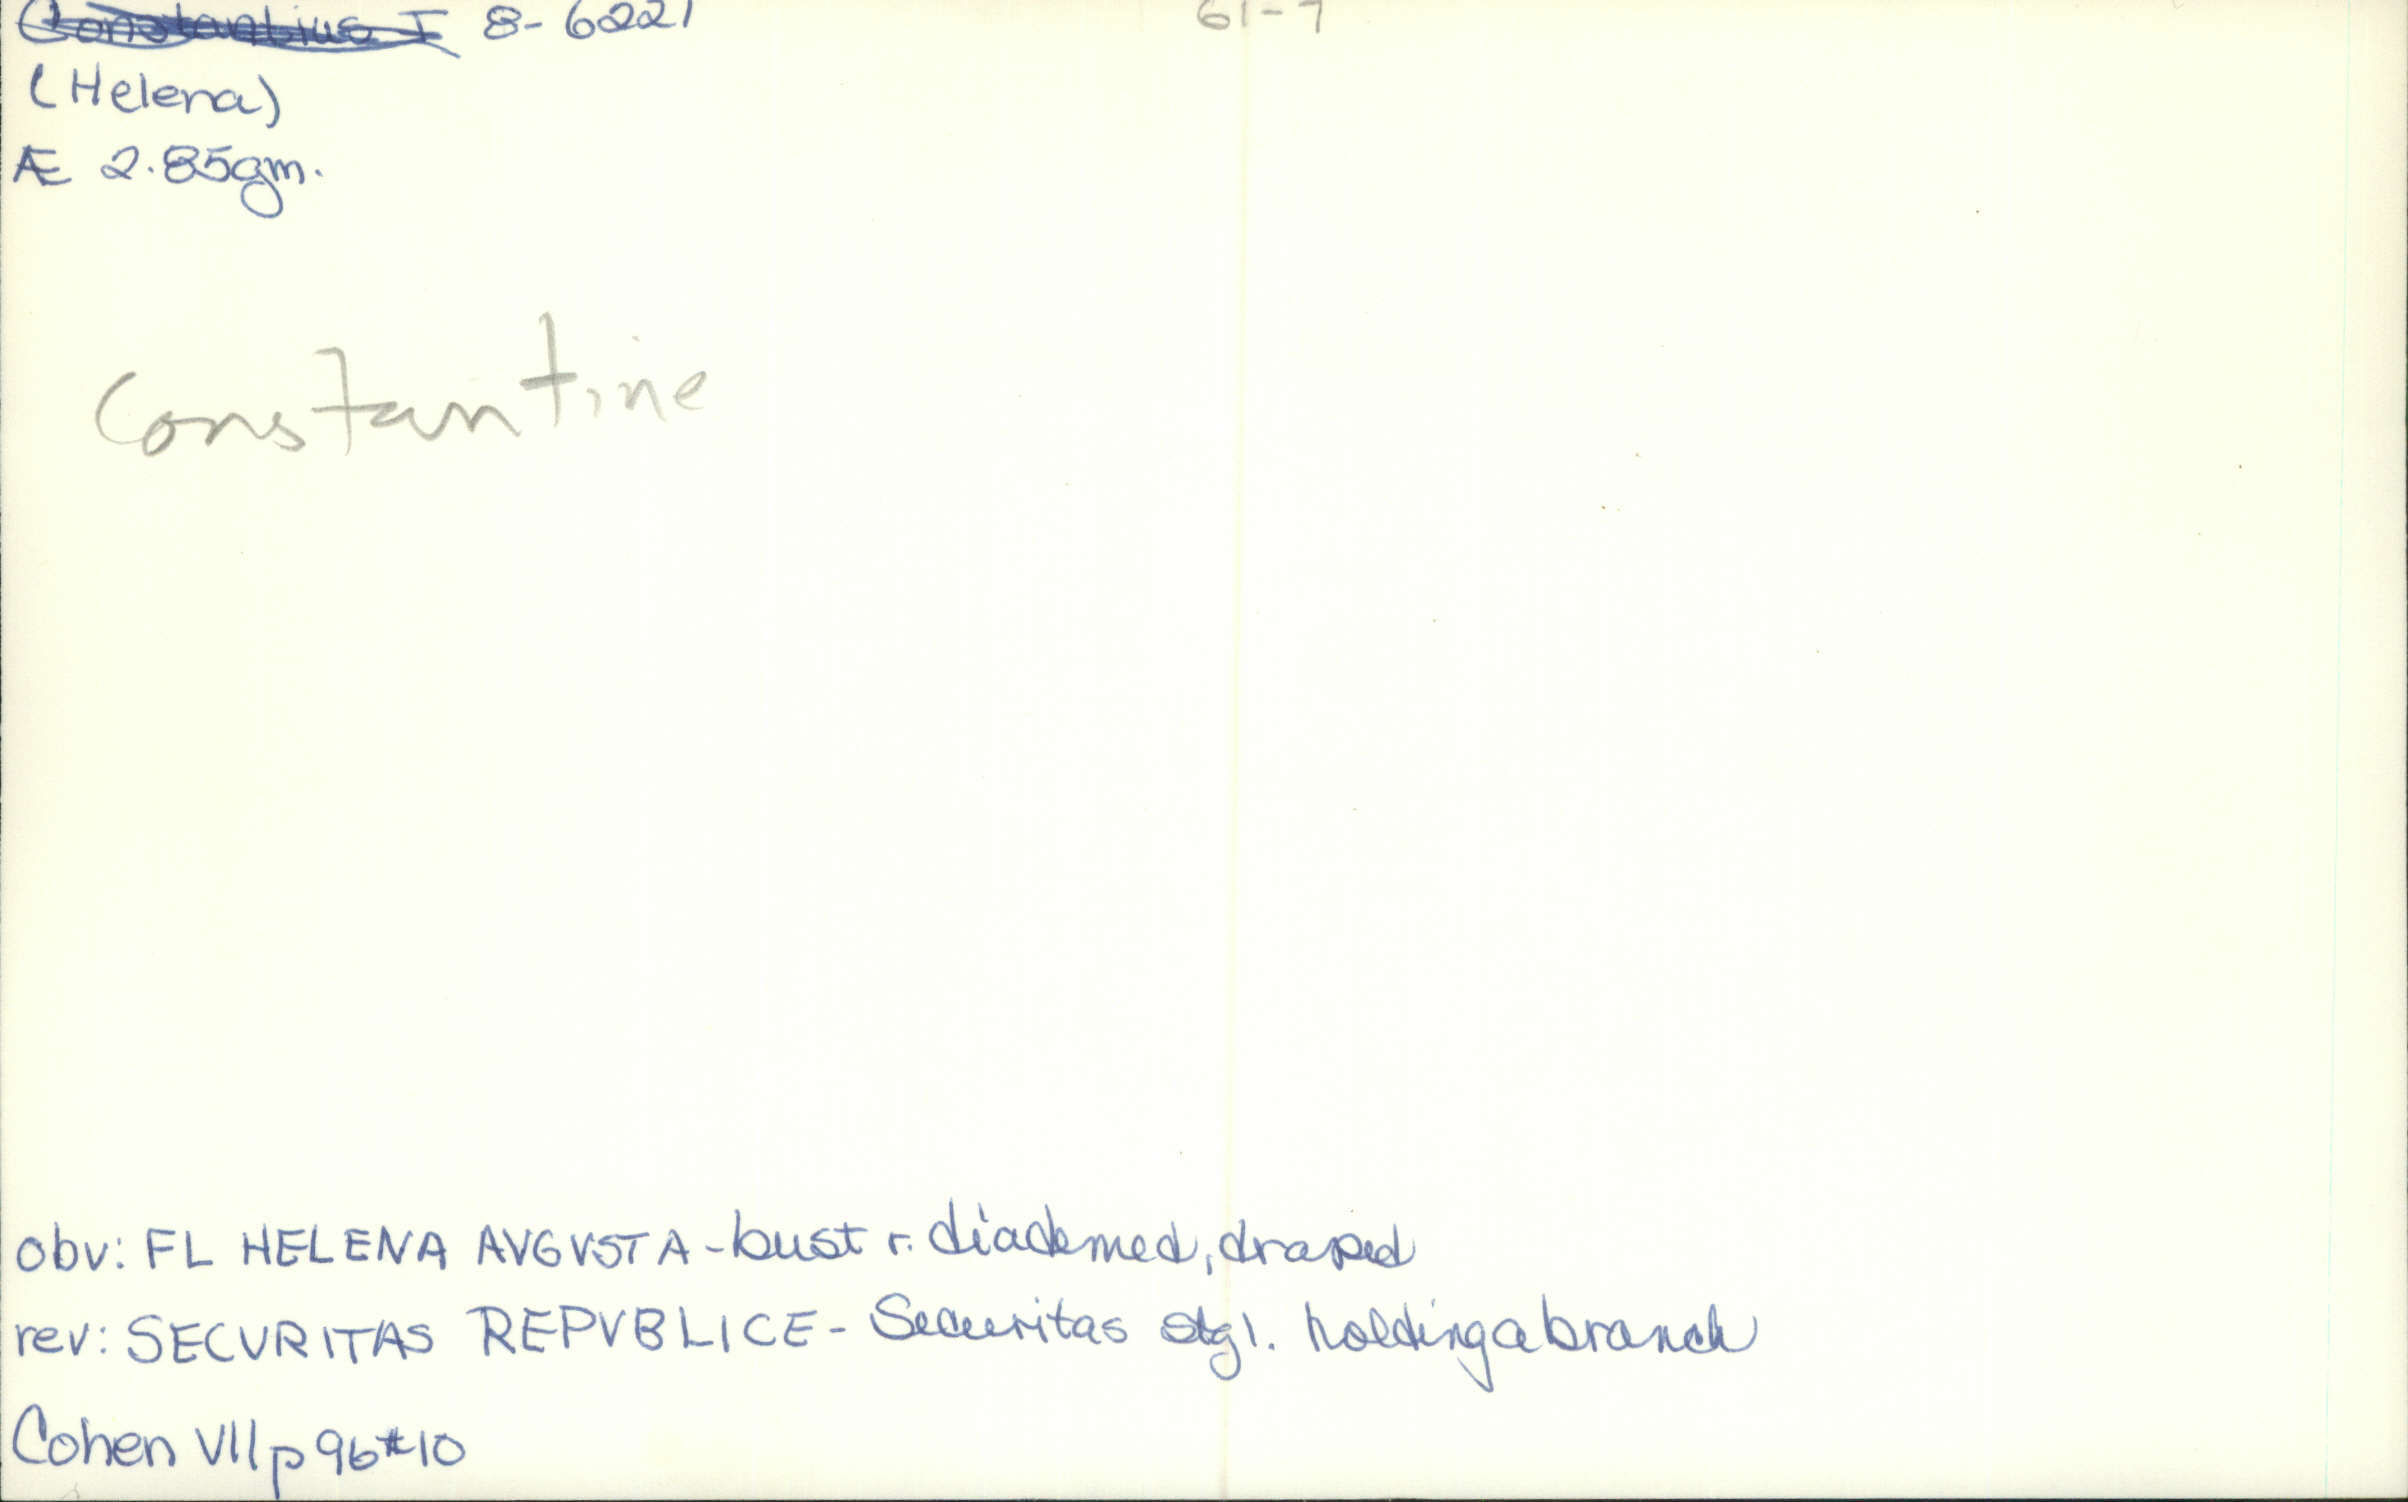 Constantius I 8-6221 61-7
(Helena)
Æ 2.85gm.
Constantine
obv: FL HELENA AVGVSTA - bust r. diademed, draped
rev: SECVRITAS REPVBLICE - Securitas stg l. holding a branch
Cohen VII p 96 #10